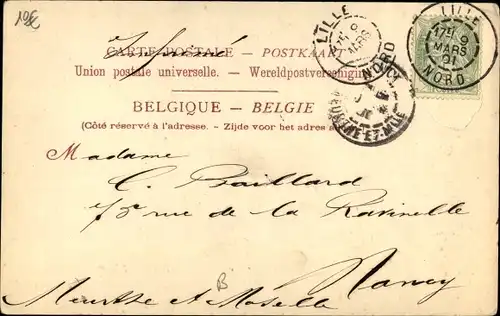 10E
LILLE
17E 9
MARS
NORD
LILLE
17E 9
MARS
01
NORD
Imprimé
CARTE POSTALE – POSTKAART
Union postale universelle. – Wereldpostvereeniging
BELGIQUE – BELGIE
(Côté réservé à l'adresse. – Zijde voor het adres
MEURTHE-ET-MLLE
Madame
C. Gaillard
rue de la Ravinelle
Nancy
Meurthe et Moselle
B